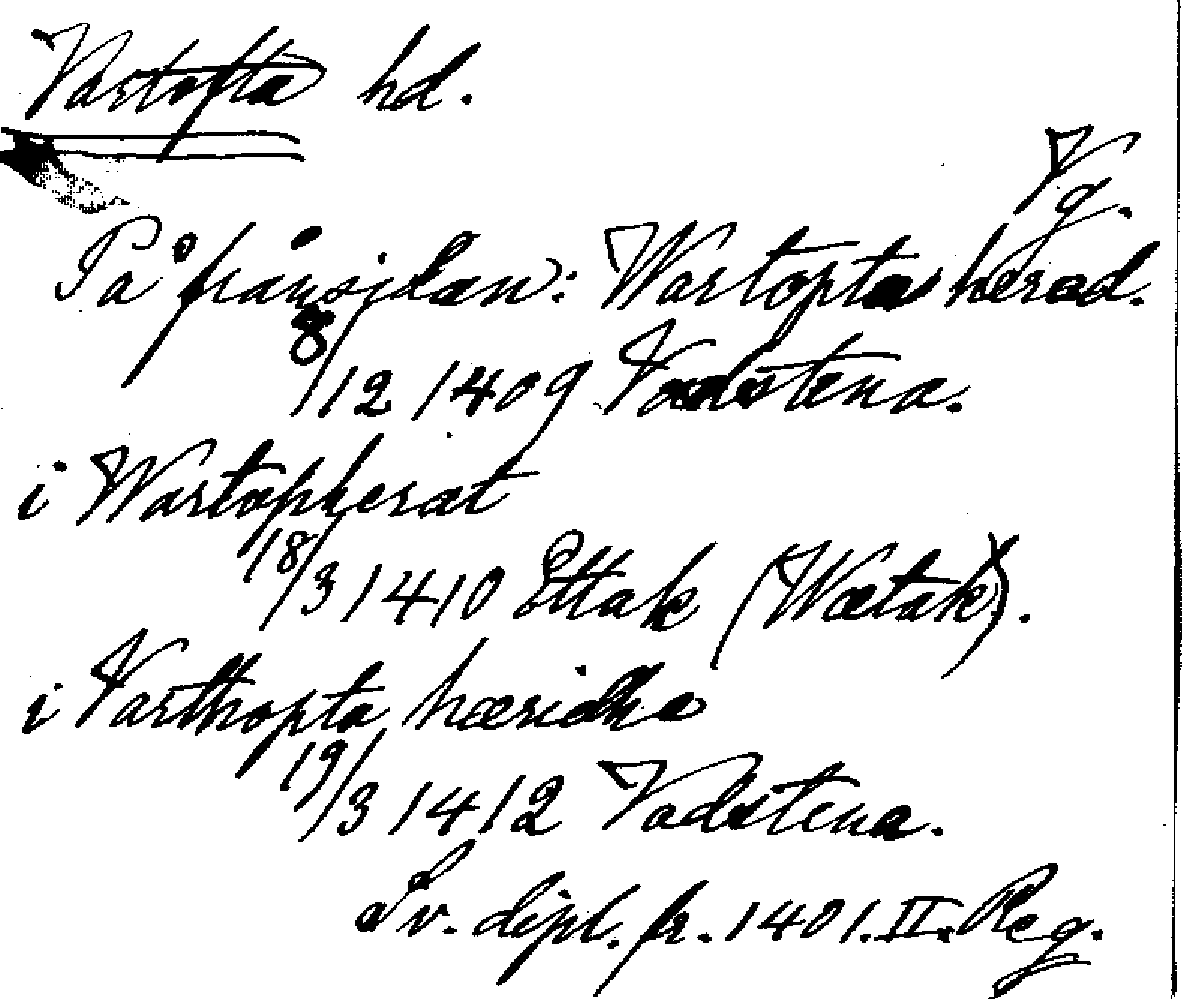 Vartofta hd.
Vg.
På frånsidan: Wartopta herad.
8/12 1409 Vadstena.
i Wartopherat
18/3 1410 Ettak (Wætak).
i Varthopta hæridha
19/3 1412 Vadstena.
Sv. dipl. fr. 1401. II. Reg.